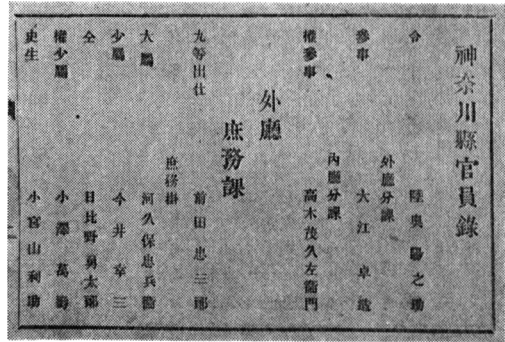 神奈川縣官員錄
令 陸奧陽之助
外廳分課
參事 大江卓造
內廳分課
權參事 高木茂久左衞門
外廳
庶務課
九等出仕 前田忠三郎
庶務掛
大屬 河久保忠兵衞
少屬 今井幸三
仝 日比野勇太郎
權少屬 小澤萬壽
史生 小宮山利助